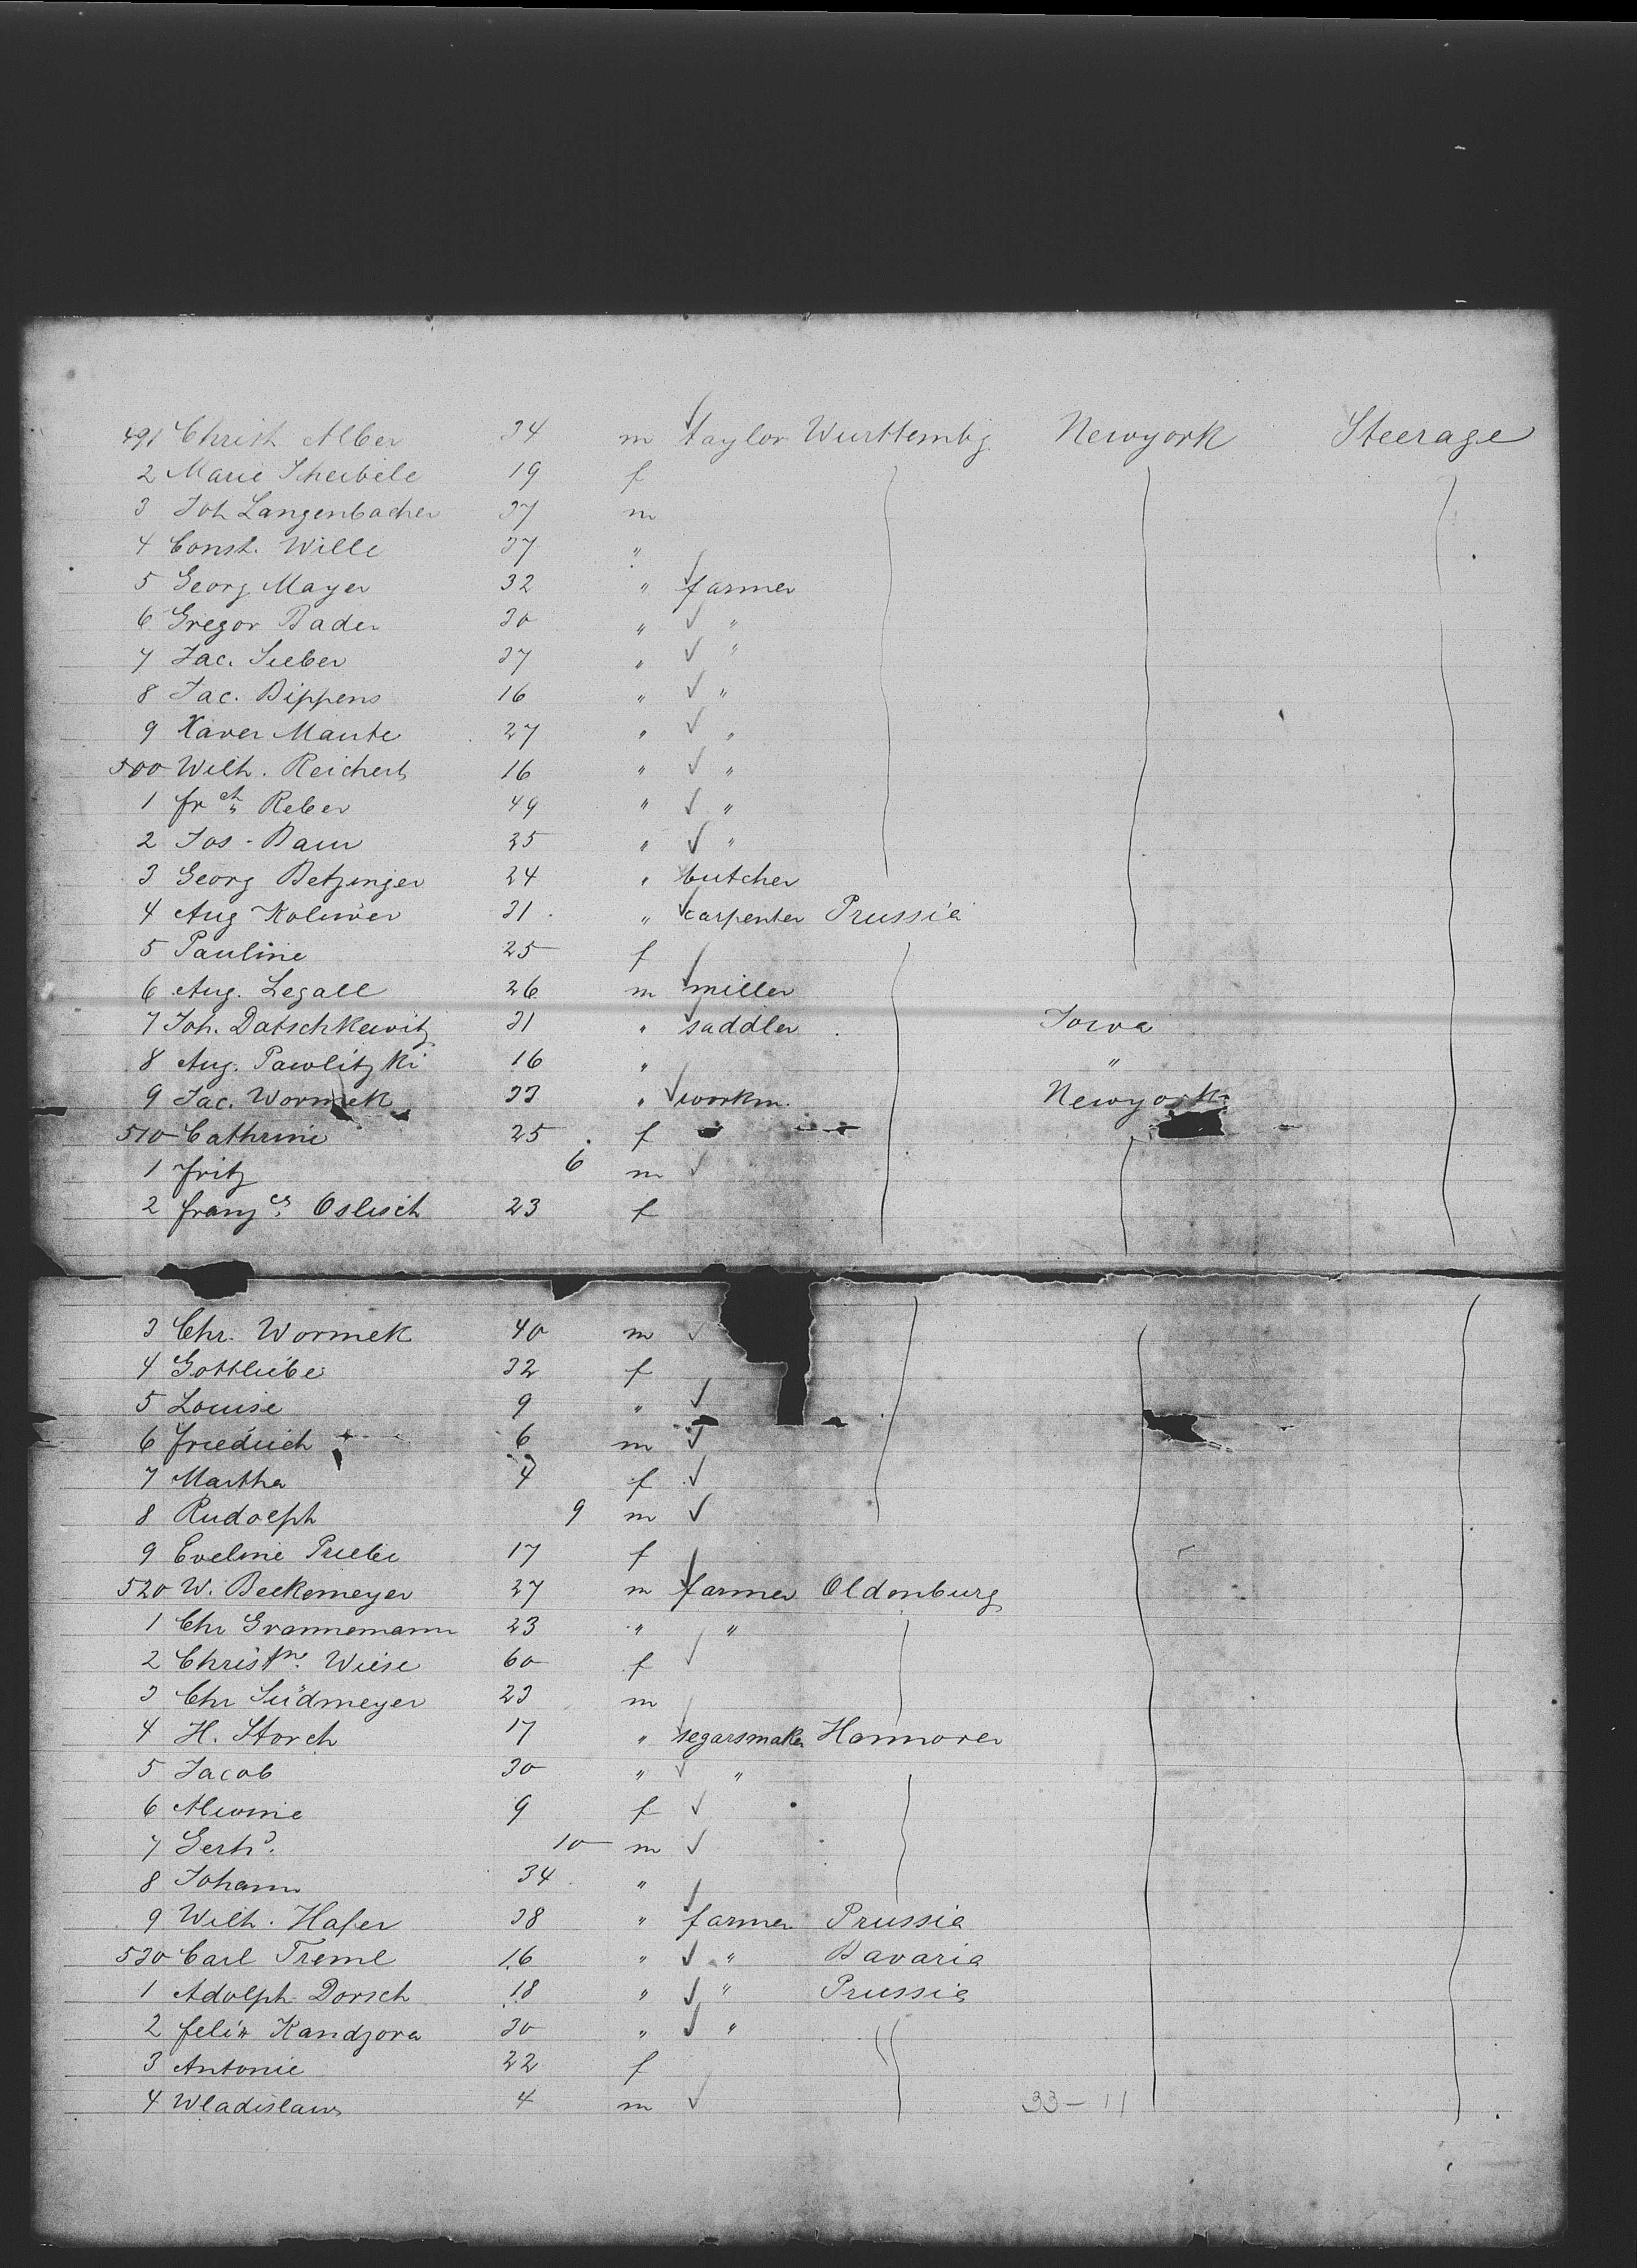 491 Christ Alber 34 m taylor Wurttembg. Newyork Steerage
2 Marie Scheibele 19 f
3 Joh Langenbacher 37 m
4 Const. Wille 37 "
5 Georg Mayer 32 " farmer
6 Gregor Bader 30 " "
7 Jac. Sieber 37 " "
8 Jac. Bippens 16 " "
9 Xaver Maute 27 " "
500 Wilh. Reichert 16 " "
1 fr Reber 49 " "
2 Jos. Baur 35 " "
3 Georg Betzinger 24 " butcher
4 Aug 31 " carpenter Prussia
5 Pauline 25 f
6 Aug. Legall 26 m miller
7 Joh. Datschkewitz 31 " saddler Iowa
8 Aug. Pawlitzki 16 " "
9 Jac. Wormek 33 " workm. Newyork
510 Cathrine 25 f
1 Fritz 6 m
2 franz Oslisch 23 f
3 Chr. Wormek 40 m
4 Gottliebe 32 f
5 Louise 9 "
6 Friedrich 6 m
7 Martha 4 f
8 Rudolph 9 m
9 Eveline Priebe 17 f
520 W. Beekemeyer 27 m farmer Oldenburg
1 Chr Grannemann 23 " "
2 Christne. Wiese 60 f
3 Chr Südmeyer 23 m
4 H. Storch 17 " segarsmaker Hannover
5 Jacob 30 " "
6 Alwine 9 f
7 Gerhd. 10 m
8 Johann 34 "
9 Wilh. Hafer 38 " farmer Prussia
530 Carl Treml 16 " " Bavaria
1 Adolph Dorsch 18 " " Prussia
2 felix Kandzora 30 " "
3 Antonie 22 f
4 Wladislaw 4 m 33 - 11